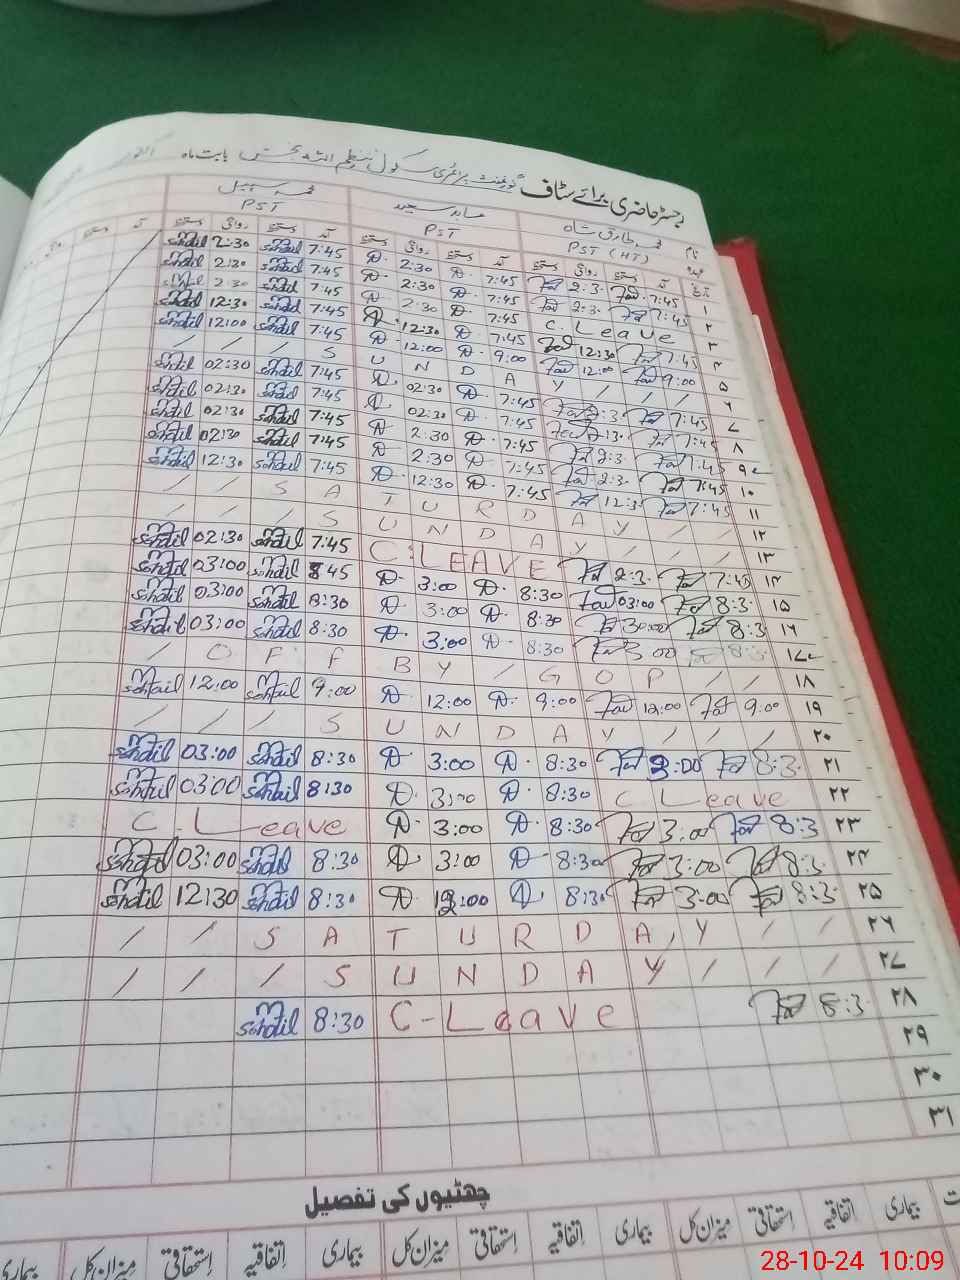 رجسٹر حاضری برائے سٹاف گورنمنٹ پرائمری سکول بابت ماہ
نام محمد طارق شاہ عابد سعید محمد سہیل
عہدہ PST (HT) PST PST
تاریخ آمد دستخط روانگی دستخط آمد دستخط روانگی دستخط آمد دستخط روانگی دستخط آمد دستخط روانگی
۱ 7:45 2:3 7:45 2:30 7:45 Sohail 2:30 Sohail
۲ 7:45 2:3 7:45 2:30 7:45 Sohail 2:30 Sohail
۳ C. Leave 7:45 2:30 7:45 Sohail 2:30 Sohail
۴ 7:45 12:30 7:45 12:30 7:45 Sohail 12:30 Sohail
۵ 9:00 12:00 9:00 12:00 7:45 Sohail 12:00 Sohail
۶ / / / S U N D A Y / / /
۷ 7:45 2:3 7:45 02:30 7:45 Sohail 02:30 Sohail
۸ 7:45 2:3 7:45 02:30 7:45 Sohail 02:30 Sohail
۹ 7:45 2:3 7:45 2:30 7:45 Sohail 02:30 Sohail
۱۰ 7:45 2:3 7:45 2:30 7:45 Sohail 02:30 Sohail
۱۱ 7:45 12:3 7:45 12:30 7:45 Sohail 12:30 Sohail
۱۲ / / S A T U R D A Y / /
۱۳ / / / S U N D A Y / / /
۱۴ 7:45 2:3 C. LEAVE 7:45 Sohail 02:30 Sohail
۱۵ 8:3 03:00 8:30 3:00 8:45 Sohail 03:00 Sohail
۱۶ 8:3 30:00 8:30 3:00 8:30 Sohail 03:00 Sohail
۱۷ 8:3 3:00 8:30 3:00 8:30 Sohail 03:00 Sohail
۱۸ / O F F B Y / G O P / /
۱۹ 9:00 12:00 9:00 12:00 9:00 Sohail 12:00 Sohail
۲۰ / / / S U N D A Y / / /
۲۱ 8:3 3:00 8:30 3:00 8:30 Sohail 03:00 Sohail
۲۲ C Leave 8:30 3:00 8:30 Sohail 03:00 Sohail
۲۳ 8:3 3:00 8:30 3:00 C. Leave
۲۴ 8:3 3:00 8:30 3:00 8:30 Sohail 03:00 Sohail
۲۵ 8:3 3:00 8:30 12:00 8:30 Sohail 12:30 Sohail
۲۶ / / S A T U R D A Y / /
۲۷ / / / S U N D A Y / / /
۲۸ 8:3 C-Leave 8:30 Sohail
۲۹
۳۰
۳۱
چھٹیوں کی تفصیل
بیماری اتفاقیہ استحقاقی میزان کل بیماری اتفاقیہ استحقاقی میزان کل بیماری اتفاقیہ استحقاقی میزان کل بیماری
28-10-24 10:09